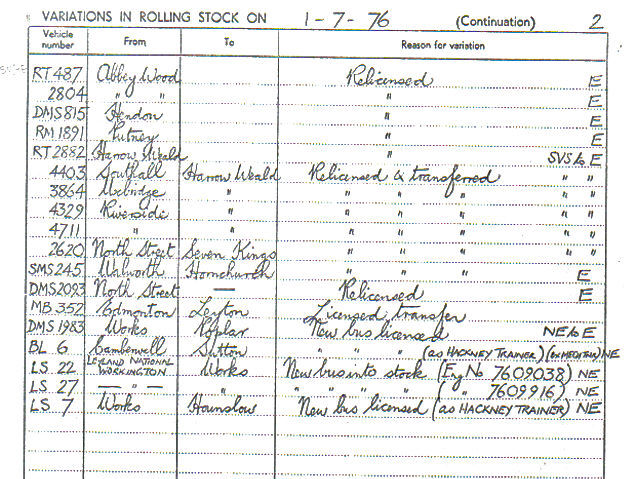 VARIATIONS IN ROLLING STOCK ON 1-7-76 (Continuation) 2
Vehicle number From To Reason for variation
RT 487 Abbey Wood Relicensed E
2804 " " " E
DMS 815 Hendon " E
RM 1891 Putney " E
RT 2882 Harrow Weald " SVS to E
4403 Southall Harrow Weald Relicensed & transferred " "
3864 Uxbridge " " " " " "
4329 Riverside " " " " " "
4711 " " " " " " "
2620 North Street Seven Kings " " " " "
SMS 245 Walworth Hornchurch " " " E
DMS 2093 North Street — Relicensed E
MB 352 Edmonton Leyton Licensed transfer
DMS 1983 Works Poplar New bus licensed NE to E
BL 6 Camberwell Sutton " " " (as HACKNEY TRAINER) NE
LS 22 LEYLAND NATIONAL WORKINGTON Works New bus into stock (Eng No 7609038) NE
LS 27 — " — " " " " " ( " 7609916) NE
LS 7 Works Hounslow New bus licensed (as HACKNEY TRAINER) NE